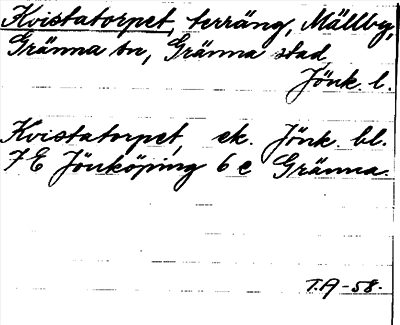 Kvistatorpet, terräng, Mällby,
Gränna tn, Gränna stad
Jönk. l.
Kvistatorpet, ek. Jönk. bl.
7E Jönköping 6 e Gränna.
T.A -58-